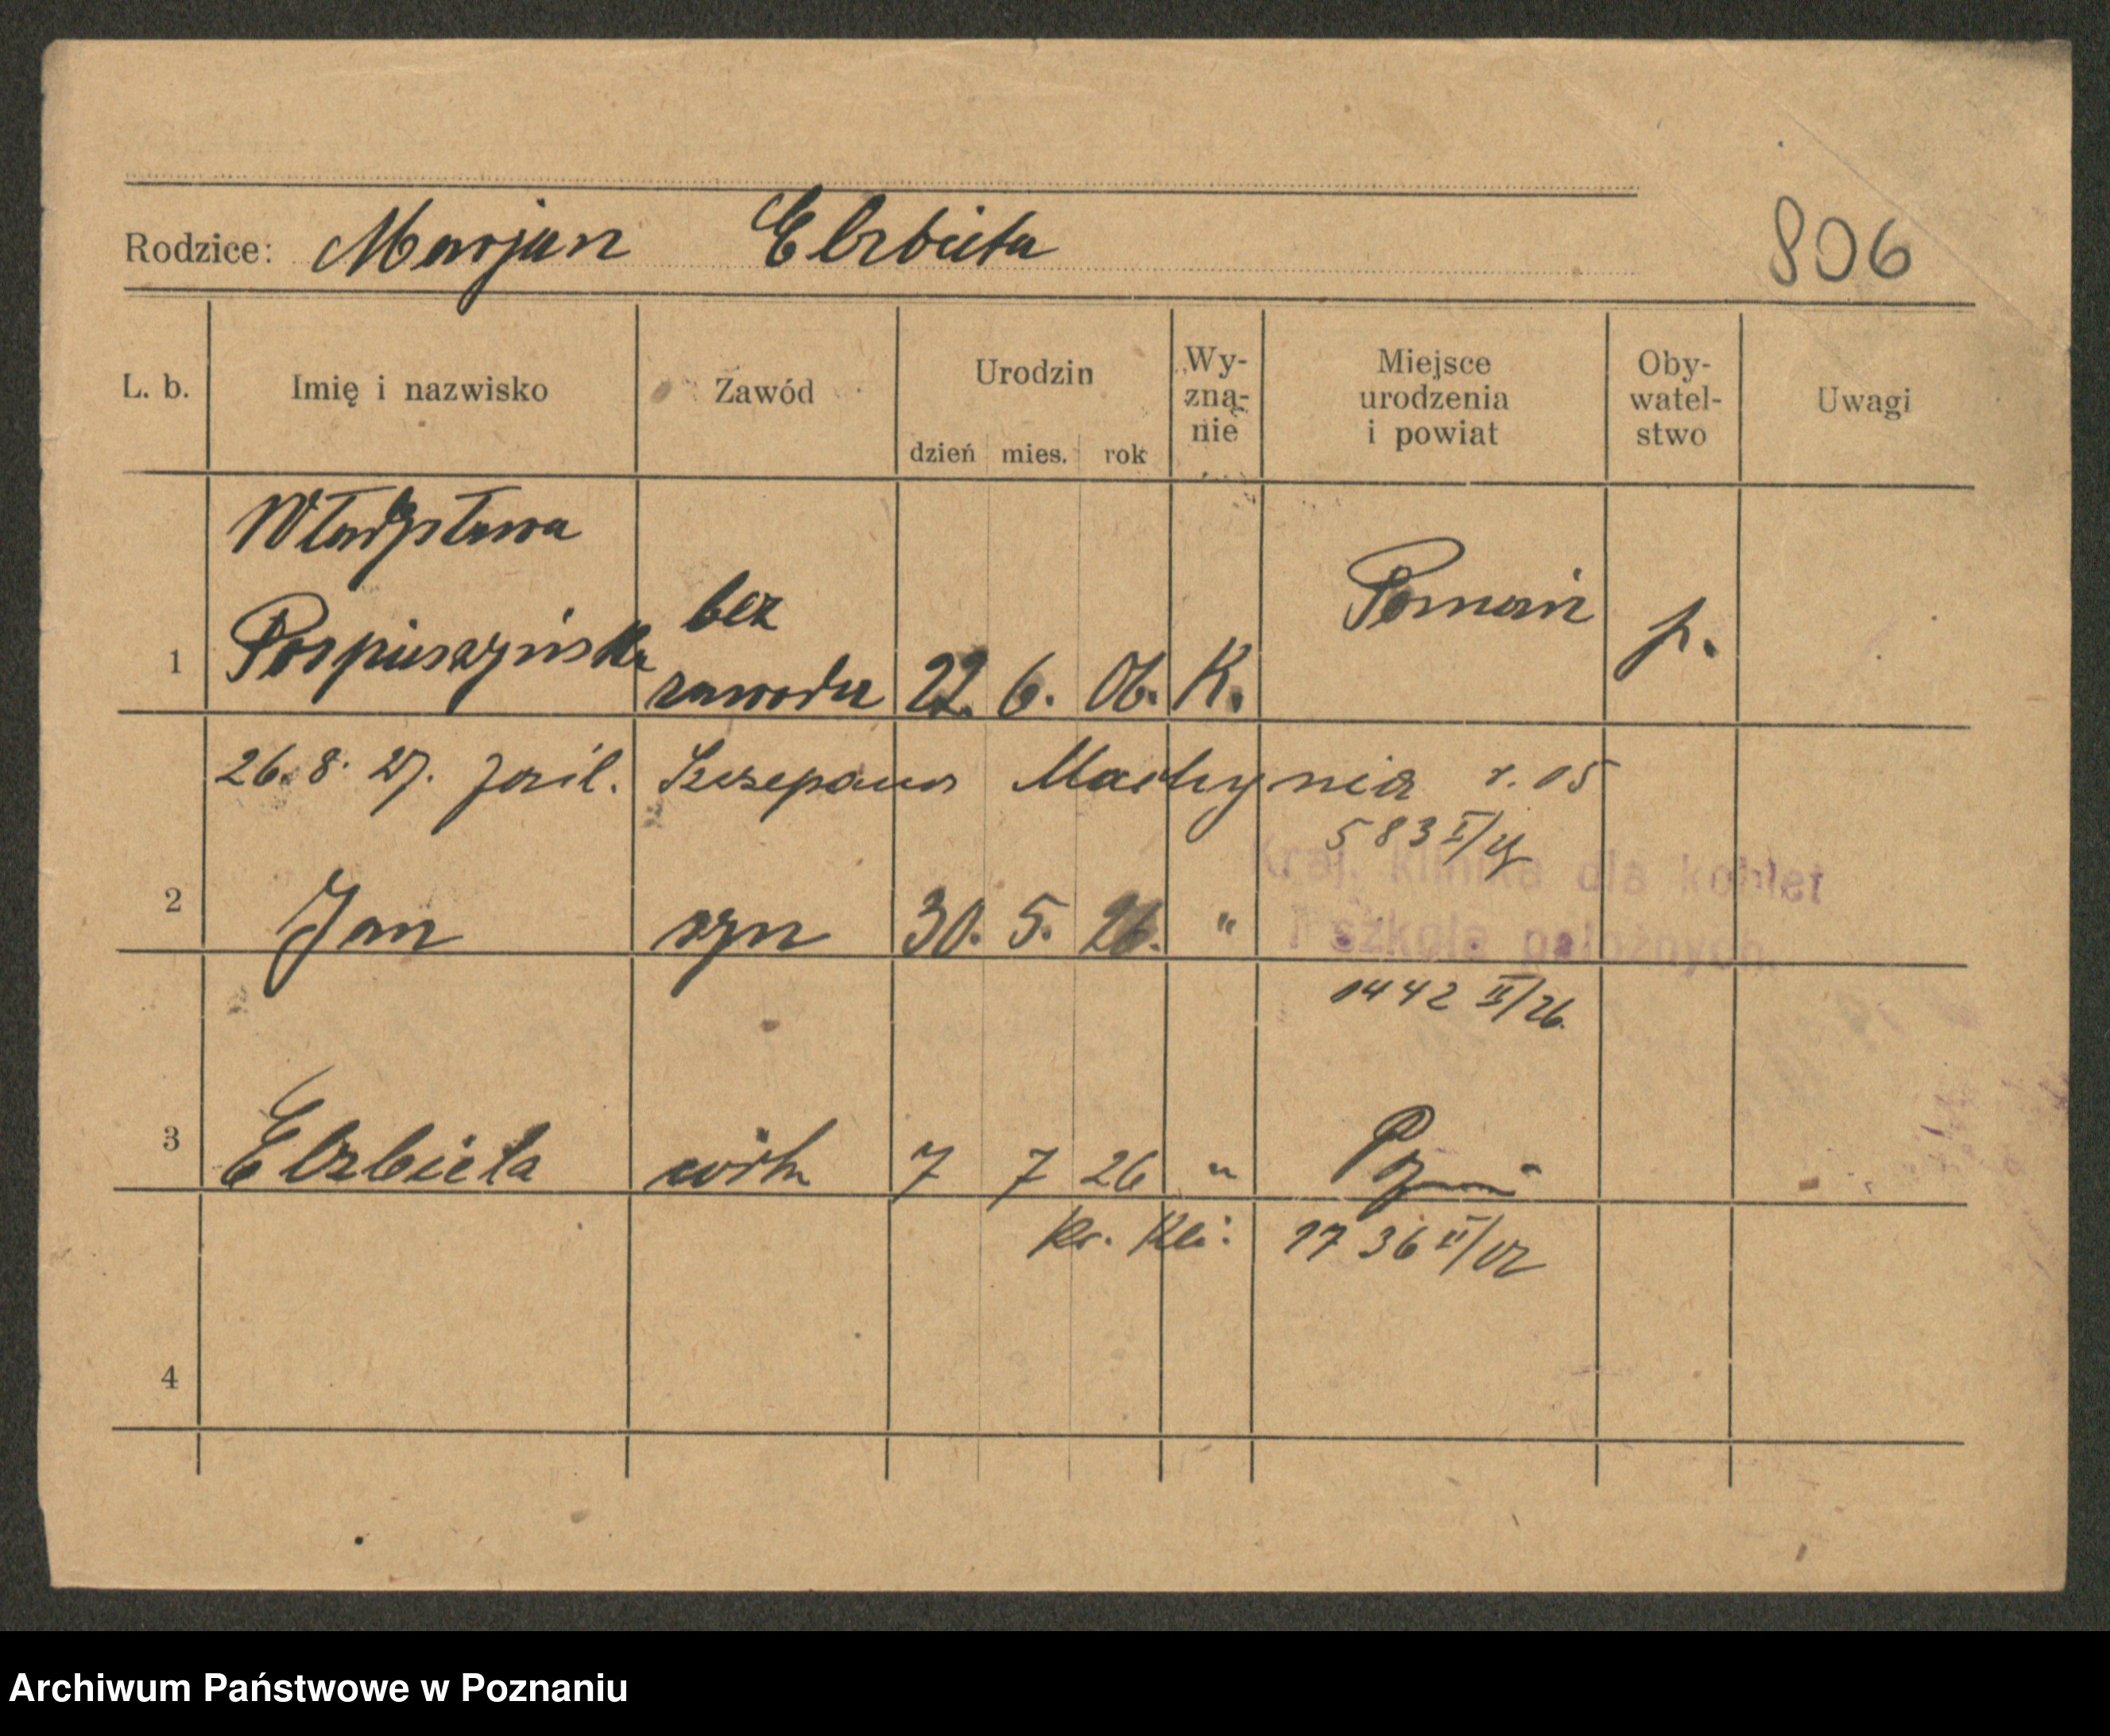 Rodzice: Marjan Elżbieta
806
L. b. Imię i nazwisko Zawód Urodzin dzień mies. rok Wy-zna-nie Miejsce urodzenia i powiat Oby-watel-stwo Uwagi
Władysława
1 Pospieszyńska bez zawodu 22. 6. 06. K. Poznań p.
26. 8. 27. Szczepana r. 05
583 I/
Kraj. klinika dla kobiet
2 Jan syn 30. 5. 26. "
i szkoła położnych.
1442 II/26.
3 Elżbieta 7 7 26 "
Kr. Kli. 1736 II/
4
Archiwum Państwowe w Poznaniu